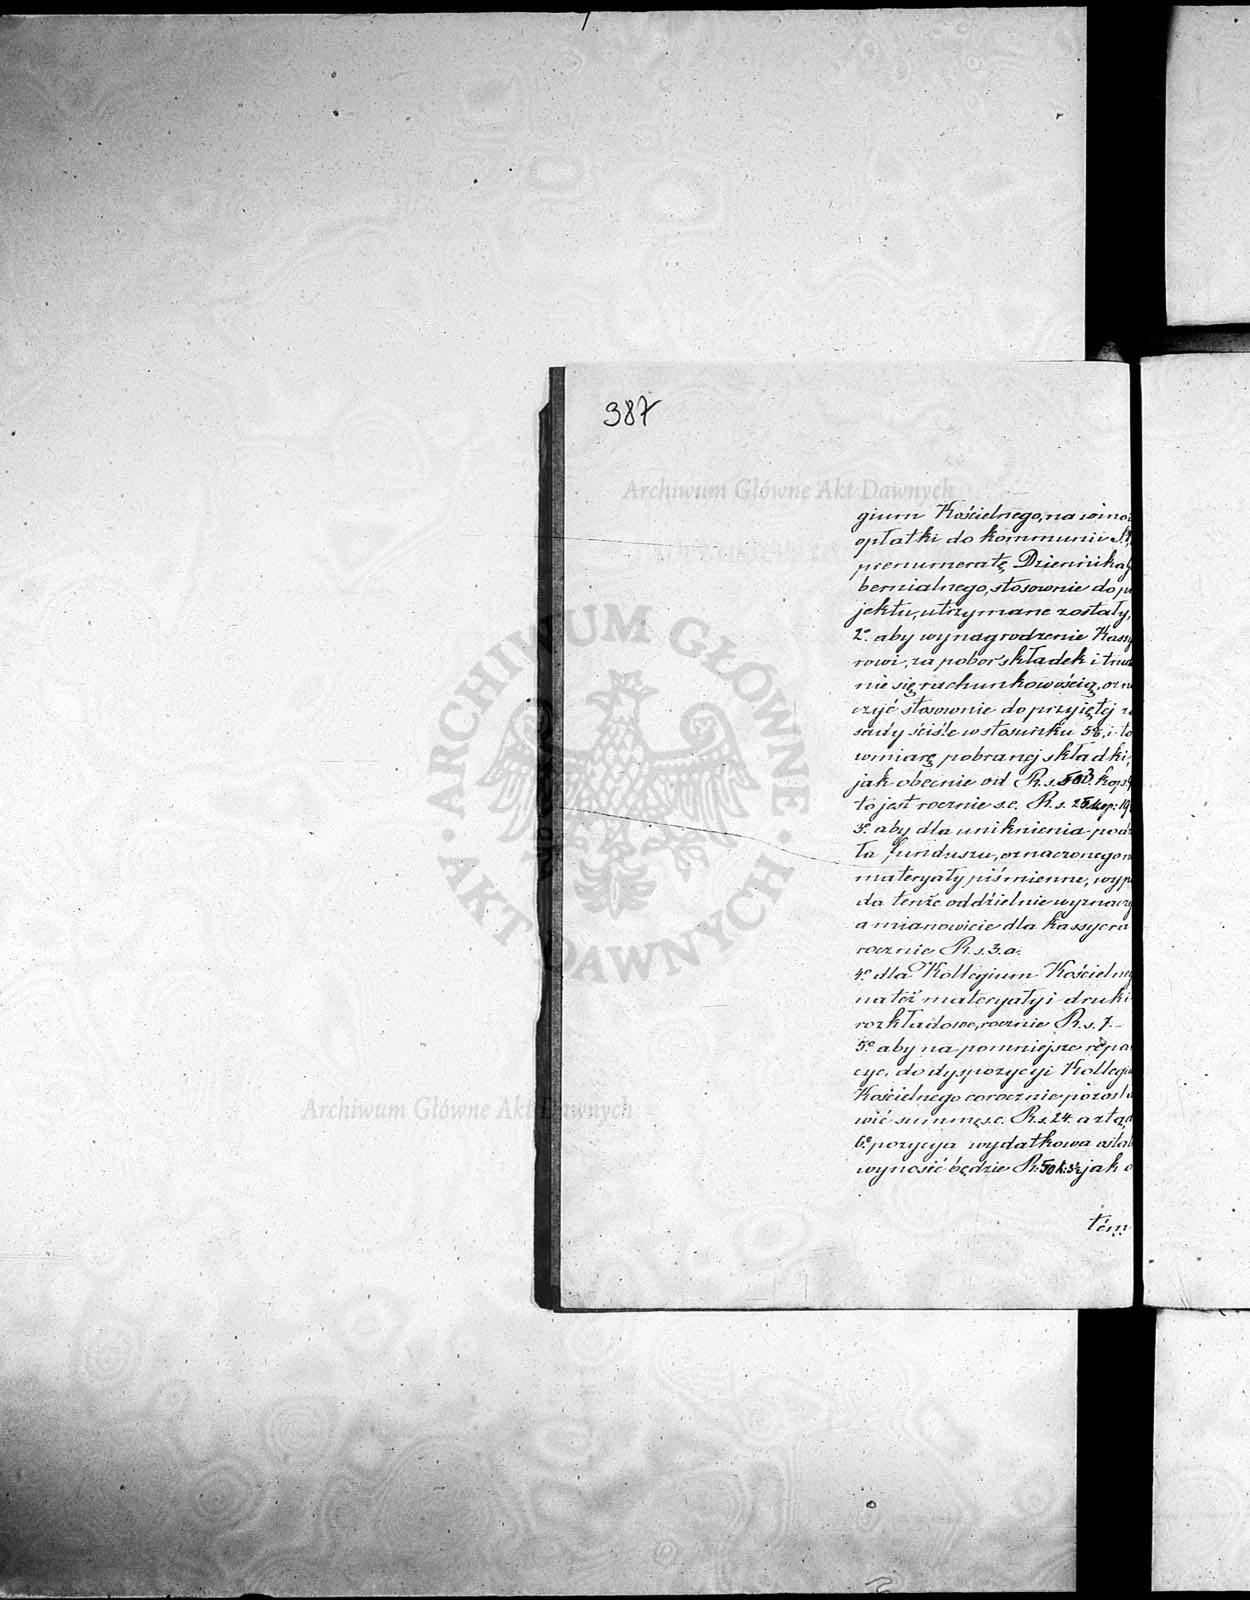 387
Archiwum Główne Akt Dawnych
gium Kościelnego, na
opłatki do kommunii
prenumeratę Dziennika
bernialnego, stosownie do
jektu, utrzymane zostały,
2º. aby wynagrodzenie Kassy
rowi, za pobór składek i trud
nie się rachunkowością, ozna
czyć stosownie do przyjętej za
sady ściśle w stosunku 5%, i to
w miarę pobranej składki,
jak obecnie od R.s. 503. kop.
to jest rocznie s.c. R.s. 25 kop: 19
3º. aby dla uniknienia
ła funduszu, oznaczonego n
materyały piśmienne,
da tenże oddzielnie wyznaczy
a mianowicie dla kassyera
rocznie R.s. 3. a.
4º. dla Kollegium Kościelneg
na też materyały i druki
rozkładowe, rocznie R.s. 7.
5º. aby na pomniejsze repa
cye, do dyspozycyi Kollegiu
Kościelnego corocznie pozosta
wić summę s.c. R.s. 24. a ztąd
6º. pozycya wydatkowa
wynosić będzie R. 50 k. 3½ jak o
tém
ARCHIWUM GŁÓWNE AKT DAWNYCH
Archiwum Główne Akt Dawnych